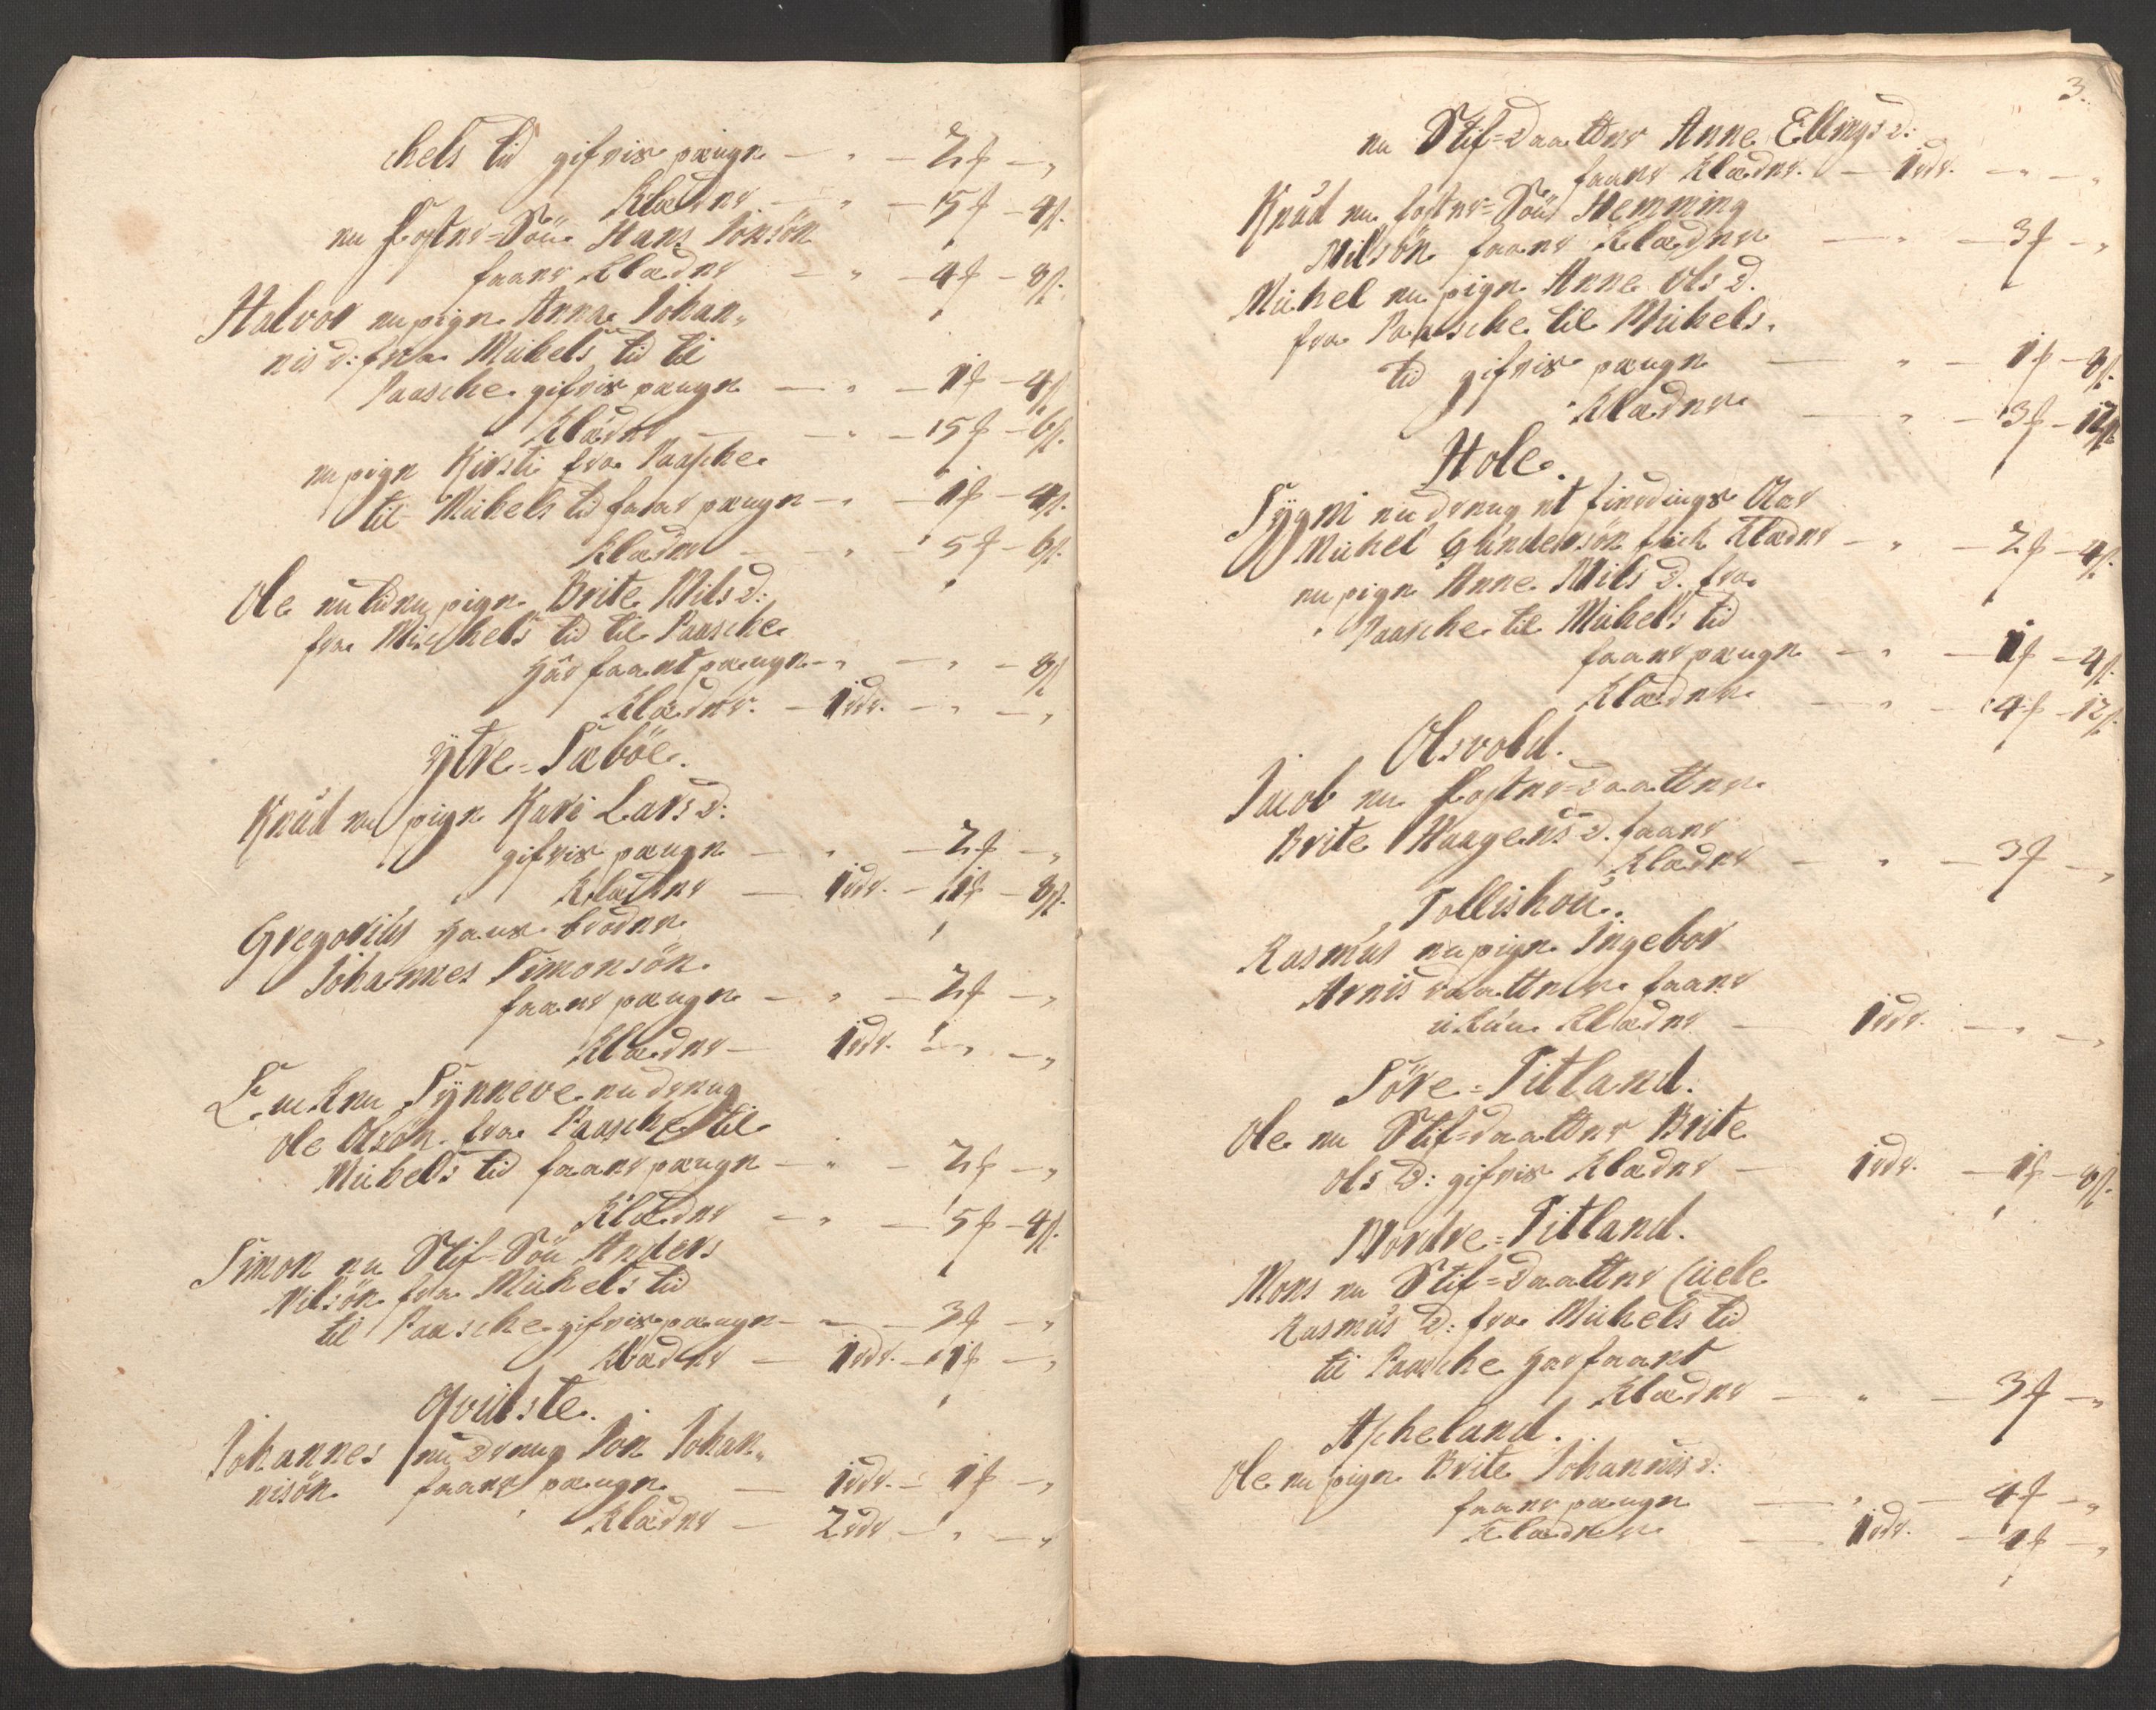 chels tid gifvis pænge — „ — 2 ƒ — „
Klæder — „ — 15 ƒ — 4 ß.
en Foster-Søn Hans Jonsön
faaer Klæder — „ — 4 ƒ — 8 ß.
Halvor en pige Anna Johan„
nis d: fra Michels tid til
Paasche gifvis pænge — „ — 1 ƒ — 4 ß
Klæder — „ — 5 ƒ — 6 ß.
en pige Kirsti fra Paasche
til Michels tid faaer pænge — „ — 1 ƒ — 4 ß.
Klæder — „ — 5 ƒ — 6 ß.
Ole en liden pige Brite Nils d:
fra Michels tid til Paasche
har faaet pænge — „ — „ — 8 ß
Klæder. — 1 rdr. — „ — „
Ytre-Sæböe.
Knud en pige Kari Lars d:
gifvis pænge — „ — 2 ƒ — „
Klæder — 1 rdr. — 1 ƒ — 8 ß.
Gregorius hans broder
Johannes Simonsön
faaer pænge — „ — 2 ƒ — „
Klæder — 1 rdr. — „ — „
Encken Synneve en dreng
Ole Olsön fra Paasche til
Michels tid faaer pænge — „ — 2 ƒ — „
Klæder — „ — 5 ƒ — 4 ß.
Simon en Stif-Søn Anders
Nilsön fra Michels tid
til Paasche gifvis pænge — „ — 3 ƒ — „
Klæder — 1 rdr. — 1 ƒ — „
Qvilste.
Johannes en dreng Jon Johan„
nisön faaer pænge — 1 rdr. — 1 ƒ — „
Klæder — 2 rdr — „ — „
3.
en Stif-Daatter Anne Ellings d:
faaer Klæder. — 1 rdr. — „ — „
Knud en foster-Søn Hemming
Nilsön faaer Klæder — „ — 3 ƒ — „
Michel en pige Anne Ols d.
fra Paasche til Michels
tid gifvis pænge — „ — 1 ƒ — 8 ß.
Klæder — „ — 3 ƒ — 12 ß.
Hole.
Sygni en dreng et fierdings Aar
Michel Gundersön fick Klæder — „ — 2 ƒ — 4 ß.
en pige Anne Nils d. fra
Paasche til Michels tid
faaer pænge — „ — 1 ƒ — 4 ß.
Klæder — „ — 4 ƒ — 12 ß.
Olsvold.
Jacob en Foster-daatter
Brite Haagens d. faaer
Klæder — „ — 3 ƒ — „
Tollishou.
Rasmus en pige Ingebor
Arnis daatter faaer
ickun Klæder — 1 rdr. — „ — „
Söre-Titland.
Ole en Stif-daatter Brite
Ols D: gifvis Klæder — 1 rdr. — 1 ƒ — 8 ß.
Nordre-Titland.
Mons en Stif-Daatter Ciele
Rasmus D: fra Michels tid
til Paasche har faaet
Klæder — „ — 3 ƒ — „
Ascheland.
Ole en pige Brite Johannis d:
faaer pænge — „ — 4 ƒ — „
Klæder — 1 rdr. — 4 ƒ — „